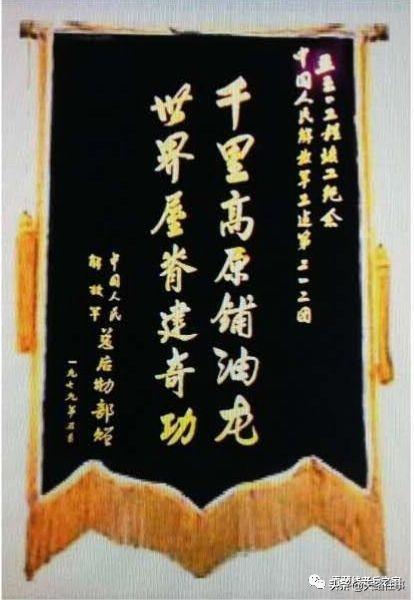 工程竣工纪念
中国人民解放军工建第 团
千里高原铺油龙
世界屋脊建奇功
中国人民
解放军 总后勤部赠
一九七九年 月
头条 @天路往事